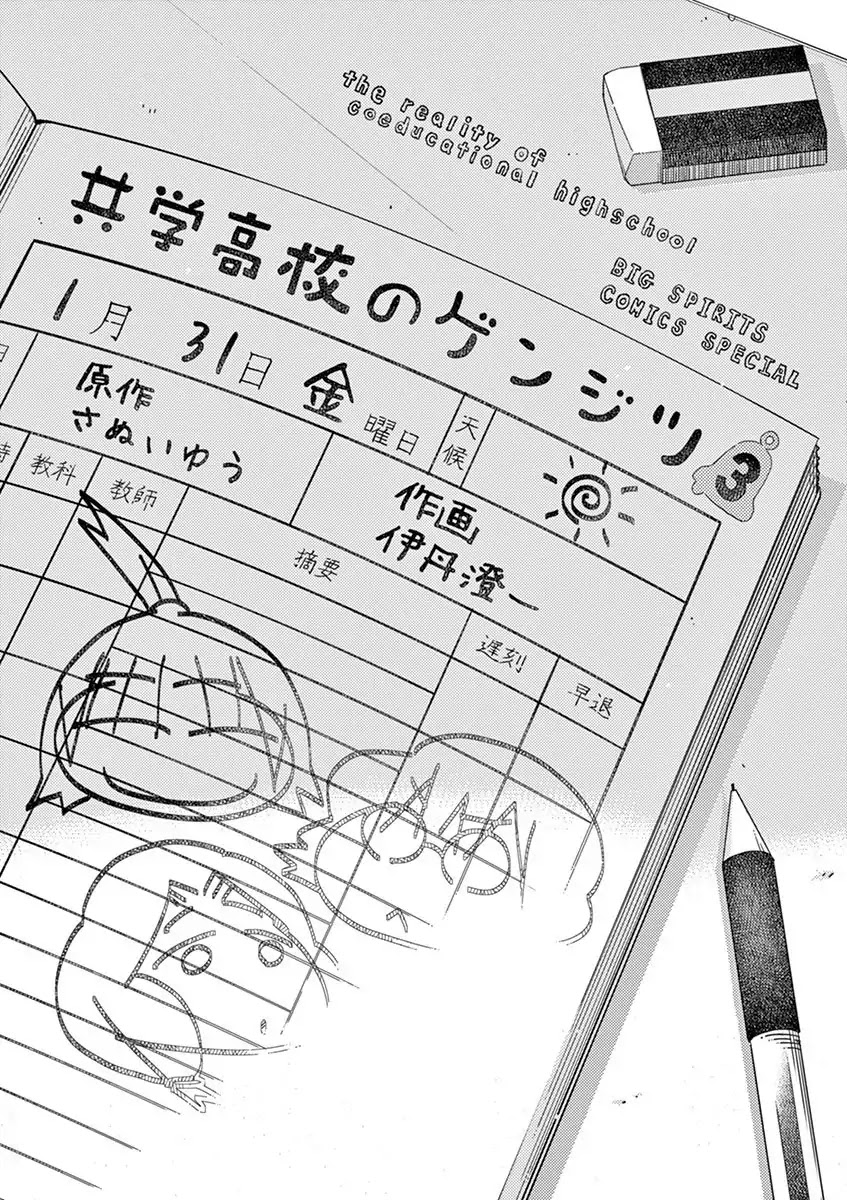 the reality of
coeducational highschool
BIG SPIRITS
COMICS SPECIAL
共学高校のゲンジツ3
1月 31日 金曜日 天候
原作
さぬいゆう
作画
伊丹澄一
教科 教師 摘要 遅刻 早退